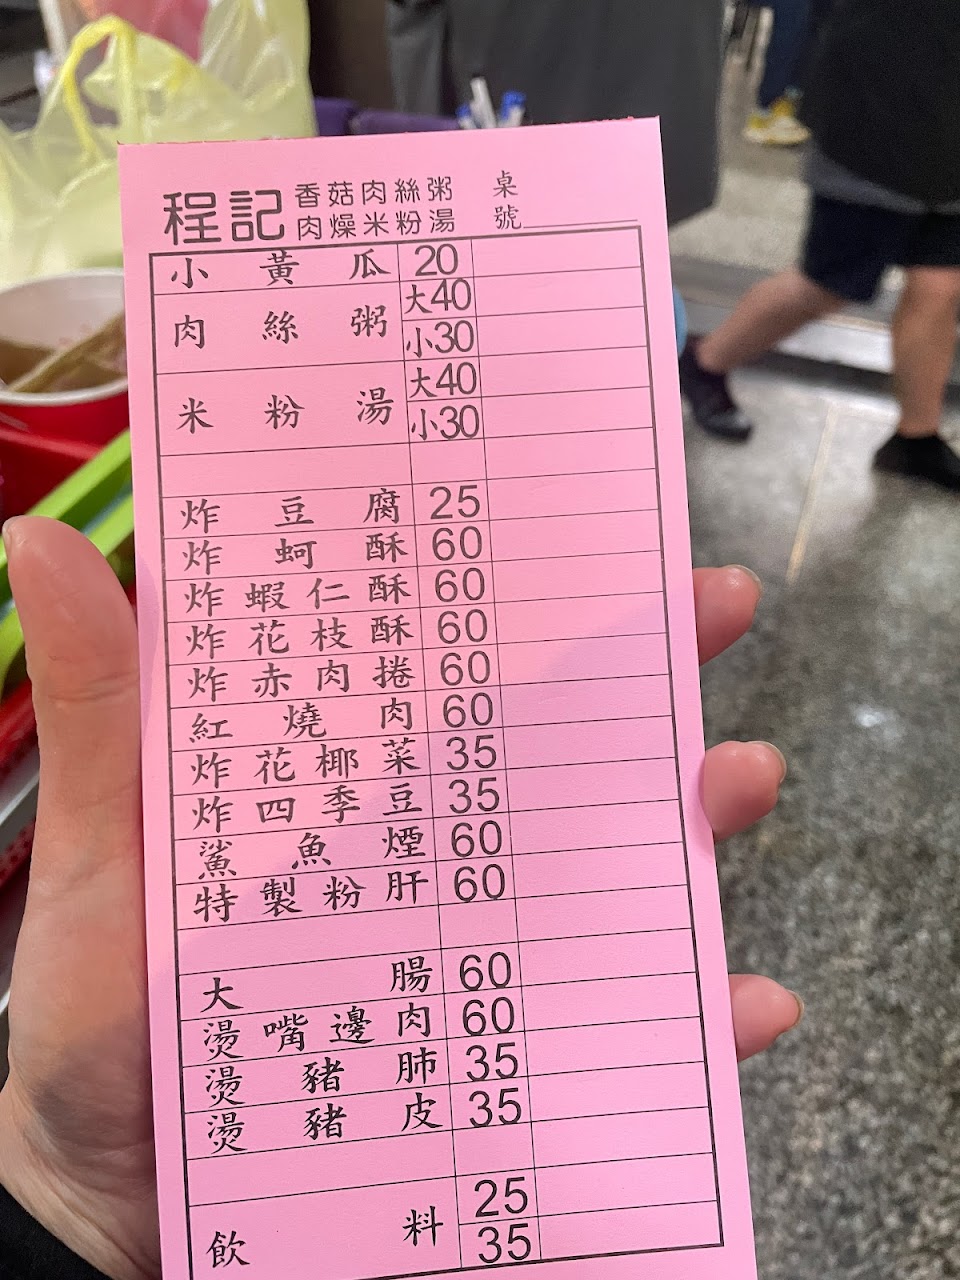 程記 香菇肉絲粥 桌
肉燥米粉湯 號
小黃瓜 20
肉絲粥 大40
小30
米粉湯 大40
小30
炸豆腐 25
炸蚵酥 60
炸蝦仁酥 60
炸花枝酥 60
炸赤肉捲 60
紅燒肉 60
炸花椰菜 35
炸四季豆 35
鯊魚煙 60
特製粉肝 60
大腸 60
燙嘴邊肉 60
燙豬肺 35
燙豬皮 35
飲料 25
35